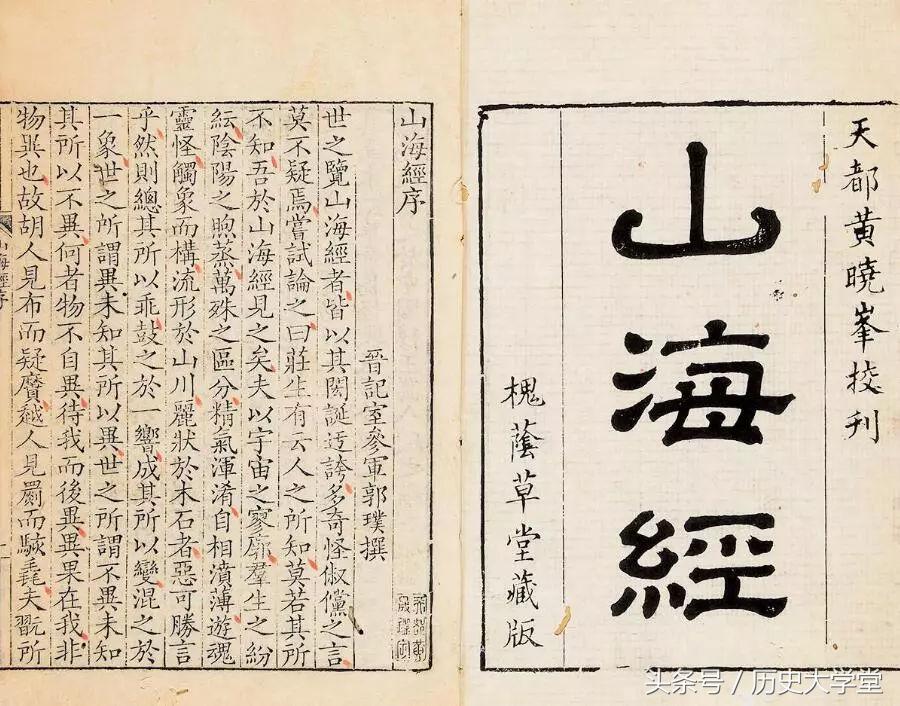 天都黄曉峯挍刋
山海經
槐蔭草堂藏版
山海經序
晉記室參軍郭璞撰
世之覽山海經者皆以其閎誕迂誇多奇怪俶儻之言
莫不疑焉嘗試論之曰莊生有云人之所知莫若其所
不知吾於山海經見之矣夫以宇宙之寥廓羣生之紛
紜陰陽之煦蒸萬殊之區分精氣渾淆自相濆薄遊魂
靈怪觸象而構流形於山川麗狀於木石者惡可勝言
乎然則總其所以乖鼓之於一響成其所以變混之於
一象世之所謂異未知其所以異世之所謂不異未知
其所以不異何者物不自異待我而後異異果在我非
物異也故胡人見布而疑黂越人見罽而駭毳夫翫所
山海經序
头条号 / 历史大学堂